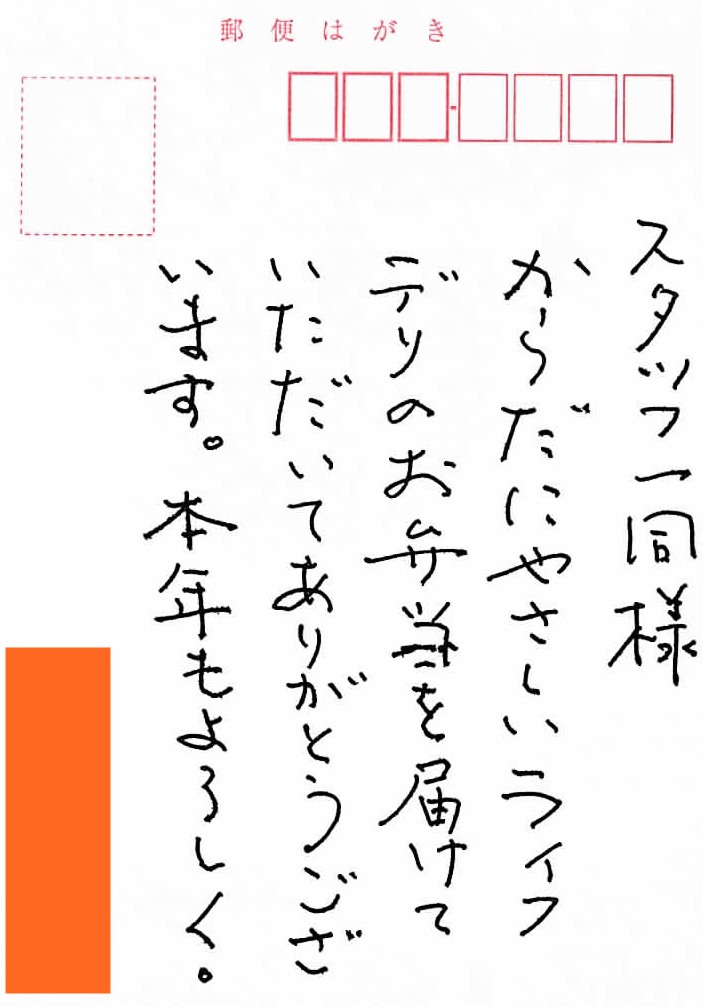 郵便はがき
スタッフ一同様
からだにやさしいライフ
デリのお弁当を届けて
いただいてありがとうござ
います。本年もよろしく。